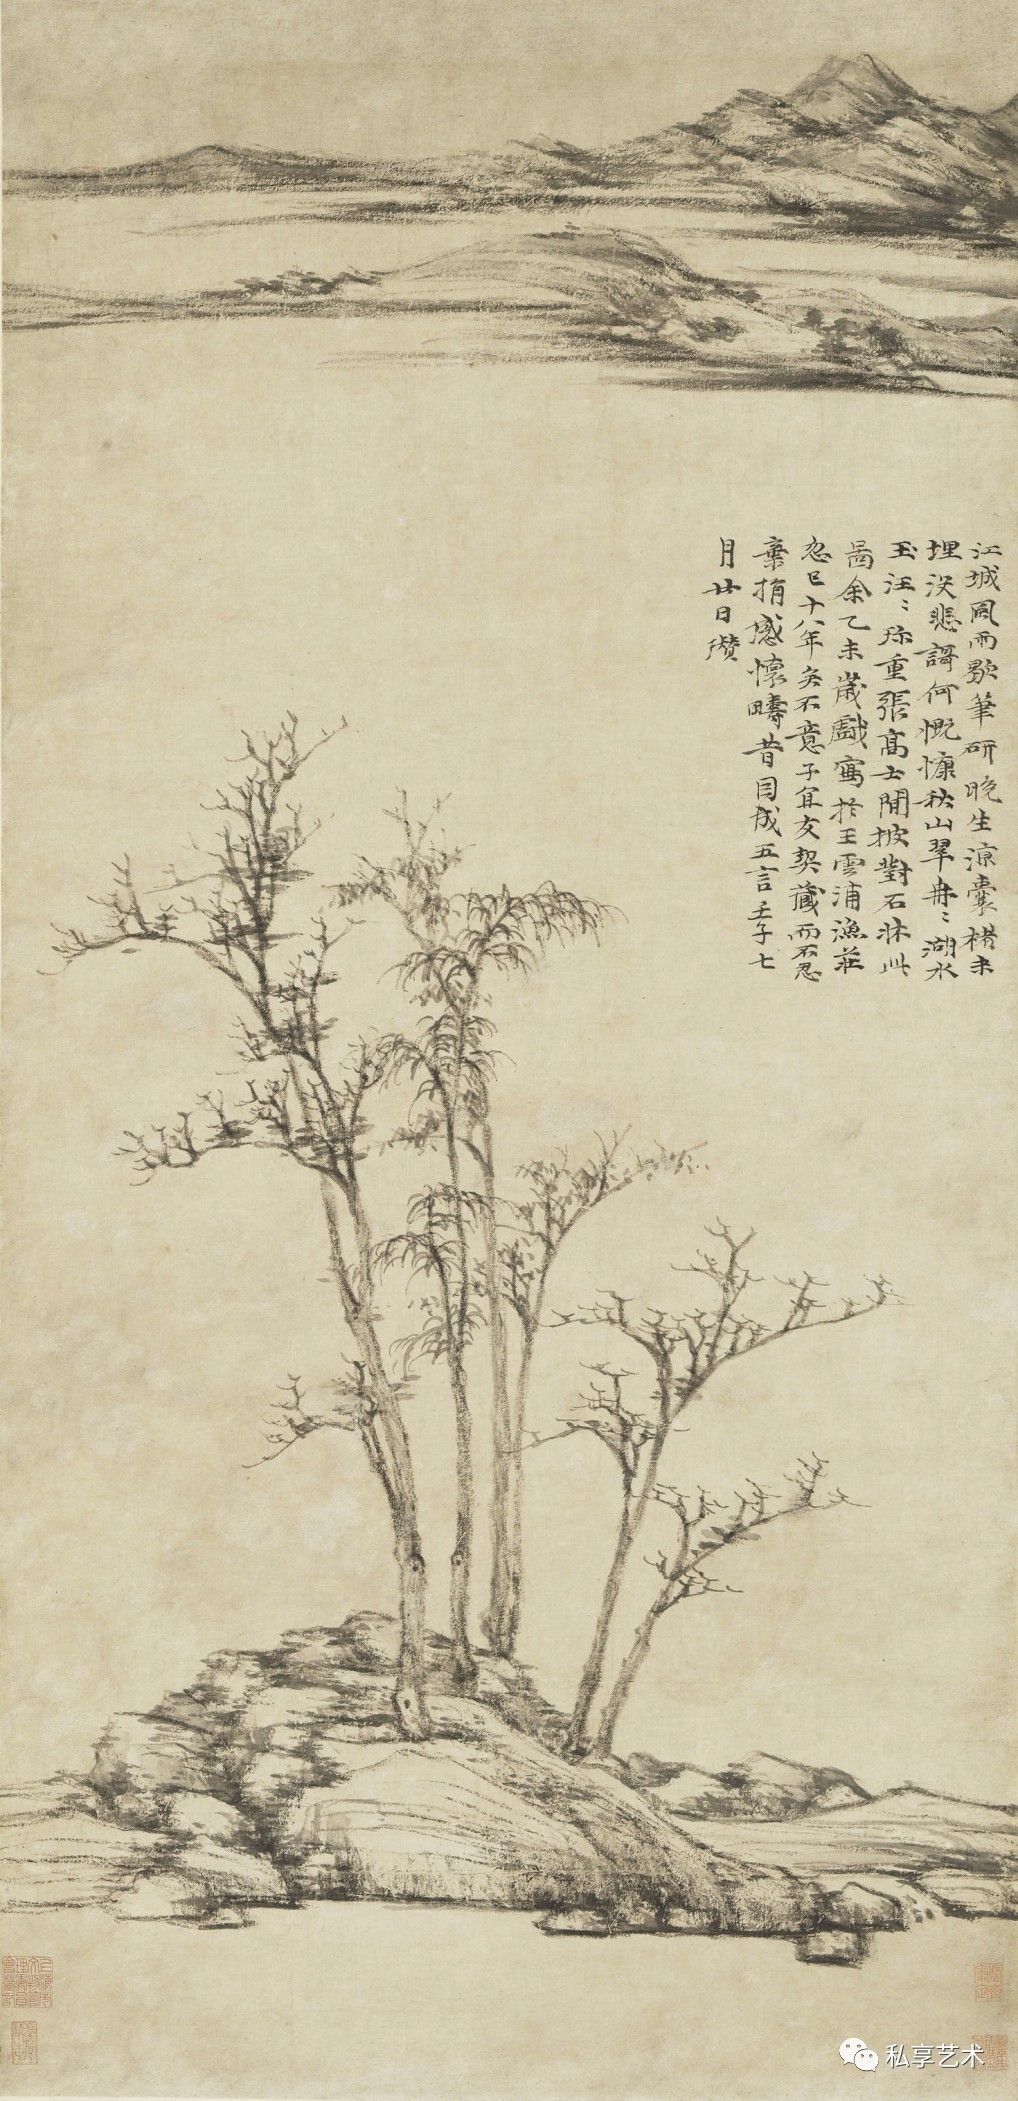 江城風雨歇筆研晚生涼囊楮未
埋沒悲謌何慨慷秋山翠冉〻湖水
玉汪〻珎重張髙士閒披對石牀此
啚余乙未歲戲寫於王雲浦漁莊
忽已十八年矣不意子宜友契藏而不忍
棄捐感懷疇昔因成五言壬子七
月廿日瓚
私享艺术